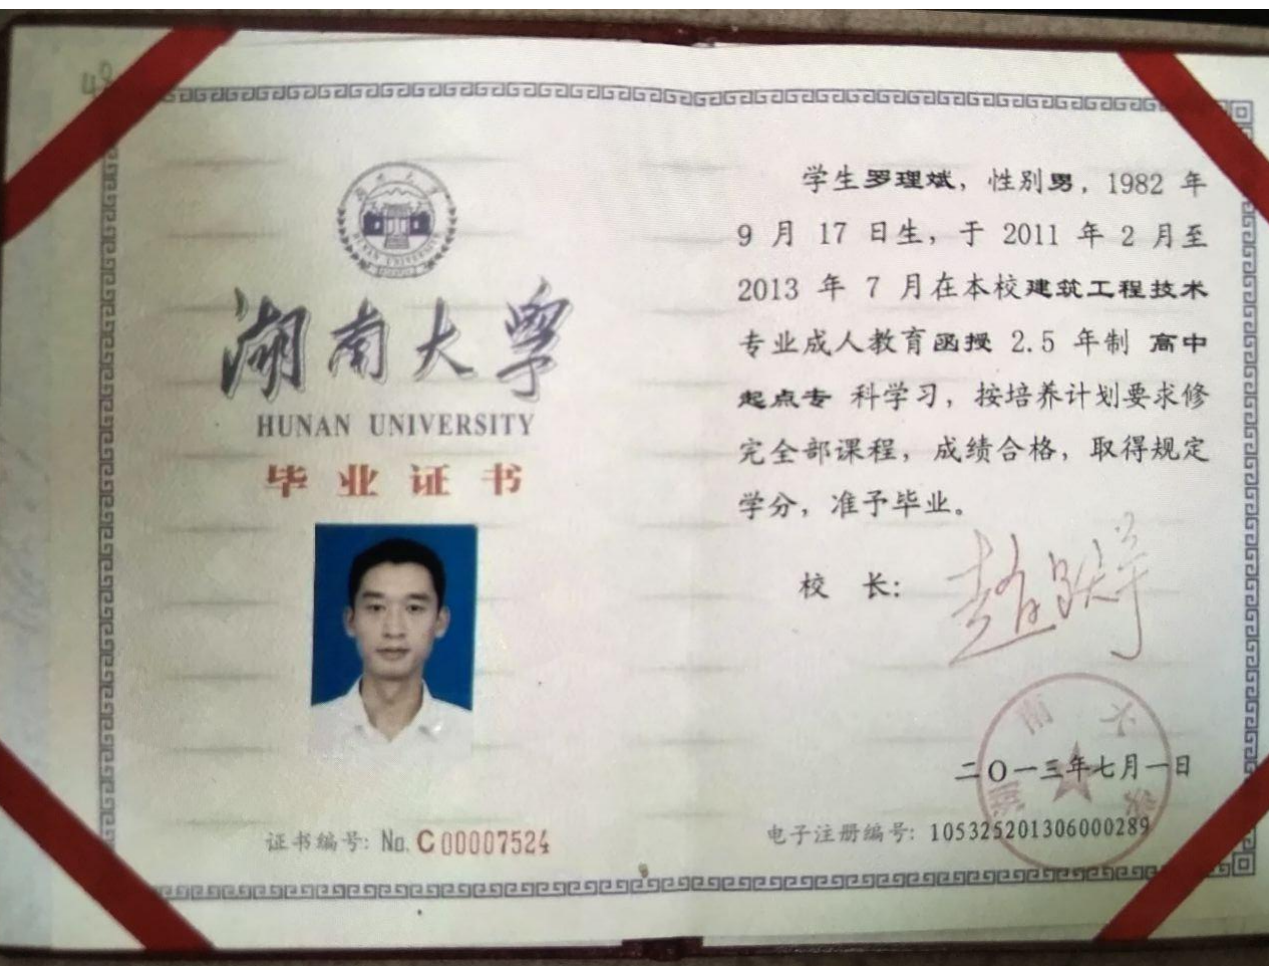 湖南大学
HUNAN UNIVERSITY
毕业证书
证书编号: No. C00007524
学生罗理斌，性别男，1982 年
9 月 17 日生，于 2011 年 2 月至
2013 年 7 月在本校建筑工程技术
专业成人教育函授 2.5 年制 高中
起点专 科学习，按培养计划要求修
完全部课程，成绩合格，取得规定
学分，准予毕业。
校 长:
二〇一三年七月一日
电子注册编号: 105325201306000289